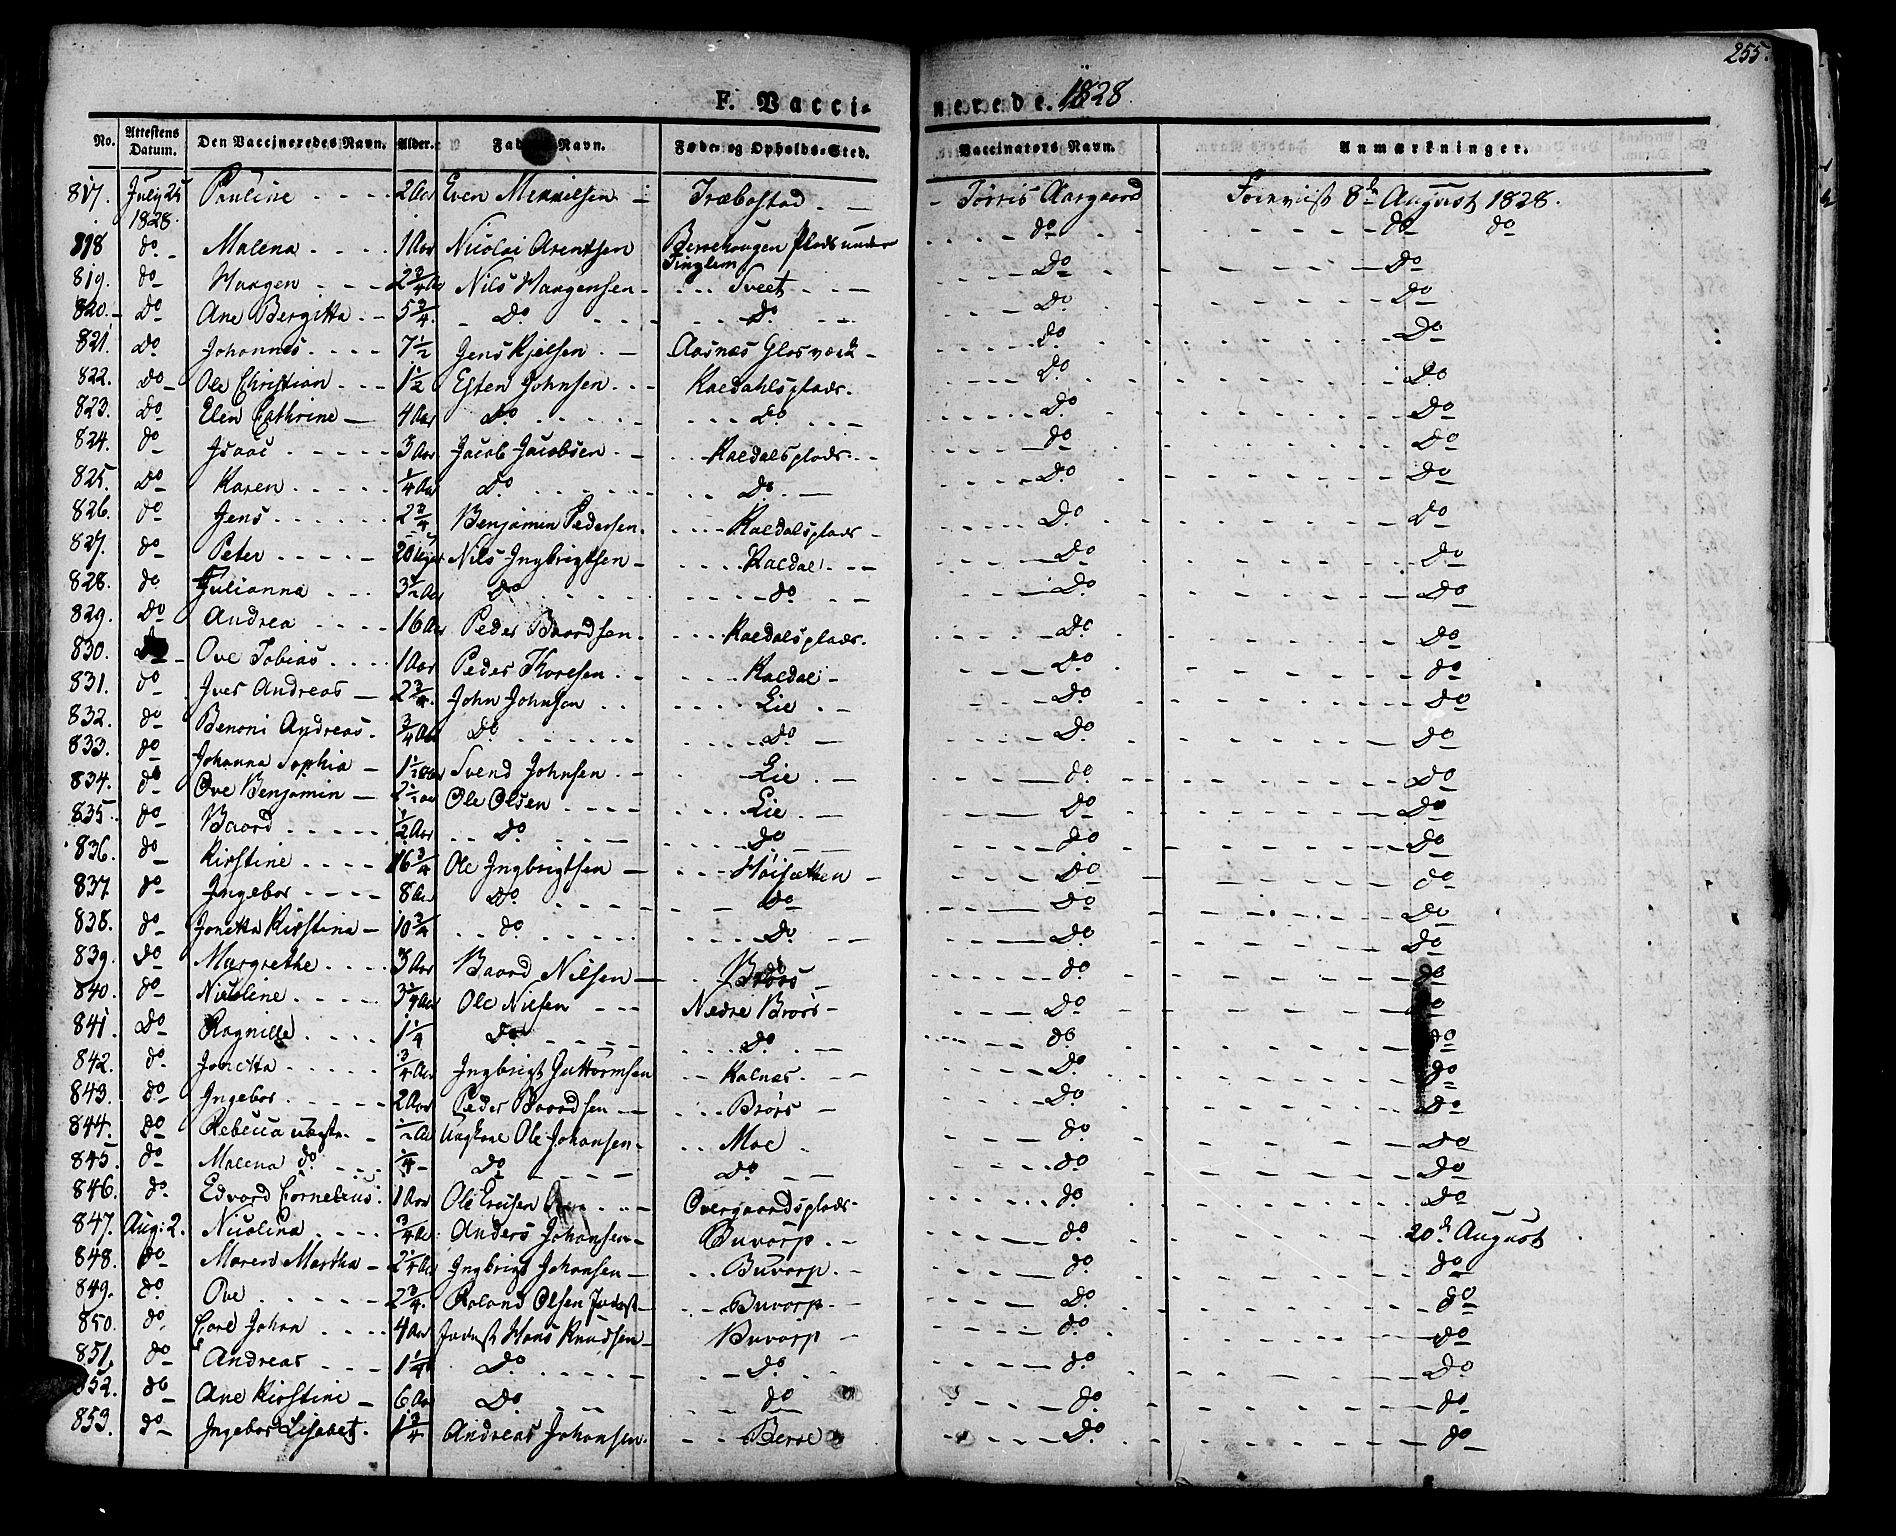 255.
F. Vaccinerede. 1828
No. Attestens Datum. Den Vaccineredes Navn. Alder. Navn. Føde- og Opholds-Sted. Vaccinators Navn. Anmærkninger.
817. July 25 1828. Pauline 2 Aar Even Mikkelsen Træbostad Tørris Aargaard Foreviist 8de August 1828.
818 do Malena 1 Aar Nicolai Arentsen Plads under do do do
819. do Haagen 2 3/4 Nils Haagensen Tveet Do Do
820. Do Ane Bergitta 5 3/4 Do Do Do Do
821. Do Johannes 7 1/2 Jens Kjelsen Aasnæs Glasværk do Do
822. Do Ole Christian 1 1/2 Esten Johnsen Kaldahlsplads Do Do
823. Do Elen Cathrine 4 Aar Do Do Do Do
824. do Isaac 3 Aar Jacob Jacobsen Kaldalsplads do Do
825. Do Karen 1/4 Aar Do Do Do Do
826. do Jens 2 3/4 Benjamin Pedersen Kaldalsplads Do Do
827. do Peter 20 Uger Nils Ingbrigtsen Kaldal Do Do
828. do Julianna 3 1/2 Aar Do do Do Do
829. Do Andrea 16 Aar Peder Baardsen Kaldalsplads Do Do
830. Do Ove Tobias 1 Aar Peder Thoresen Kaldal Do do
831. do Iver Andreas 2 3/4 John Johnsen Lie Do Do
832. do Benoni Andreas 3/4 Aar Do Do Do do
833. do Johanna Sophia 1 1/2 Aar Svend Johnsen Lie do do
834. do Ove Benjamin 2 1/2 Aar Ole Olsen Lie Do Do
835. do Baard 1/2 Aar Do do do Do
836. do Kirstine 16 3/4 Ole Ingbrigtsen Høisætten Do do
837 do Ingebor 8 Aar Do Do Do Do
838. do Jonetta Kirstina 10 3/4 do Do Do Do
839. Do Margrethe 3 Aar Baard Nilsen Brørs do do
840. do Nicoline 3 1/4 Aar Ole Nilsen Nedre Brørs Do do
841. Do Ragnille 1 1/4 Do Do do do
842. do Jonetta 3/4 Aar Ingbrigt Guttormsen Kalnes Do do
843. do Ingebor 2 Aar Peder Baardsen Brørs Do Do
844. do Rebecca 1/2 Aar Ungkarl Ole Johansen Moe do Do
845. do Malena do 1/4 Do Do do Do
846. do Edvard Cornelius 1 Aar Ole Overgaardsplads do Do
847. Aug: 2. Nicolina 3/4 Aar Anders Johansen Buvarp do 20de August
848. do Maren Martha 2 1/4 Aar Ingbrigt Johansen Buvarp do do
849. do Ove 2 3/4 Roland Olsen Inderst Buvarp Do do
850. do Carl Johan 4 Aar Inderst Hans Knudsen Buvarp do do
851. do Andreas 1 1/4 Do Do do Do
852. do Ane Kirstine 6 Aar Do do do do
853. do Ingebor Lisabet 1 3/4 Andreas Johansen Berre Do do